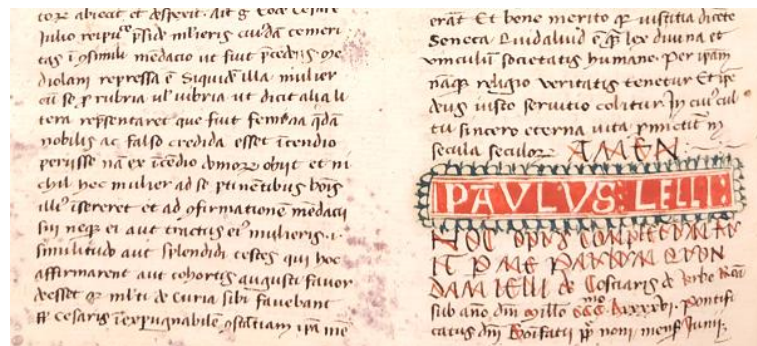 tore abiecit et despexit. Ait .g. Eodē cesare
Iulio reipuᶜᵉ p̄side mlieris cuiꝰdā temeri
tas ī ꝯsimili mēdacio ut fuit p̄cedēs. me
diolani repressa ē Siquidē illa mulier
cū se ꝓ rubria ul' iubria ut dicit alia li
tera repn̄sentaret que fuit femina q̄dā
nobilis ac falso credida esset īcendio
periisse nā ex īcēdio domoꝝ obiit et ni
chil hoc mulier ad se ꝑtinētibus bōis
illiꝰ īsereret et ad ꝯfirmationē mēdacii
sui neqꝫ ei aut tractus eiꝰ mulieris .i.
similitudo aut splendidi testes qui hoc
affirmarent aut cohortis augusti favor
deesset qꝫ ml'ti de curia sibi favebant
cesaris īexpugnabilē ꝯstātiam ipā me
erāt Et bene merito qꝫ iustitia dicēte
Seneca Quidquid ē qꝫ lex divina et
vinculū societatis humane. Per ipām
nāqꝫ religio veritatis tenetur Et ipe
deus iusto servitio colitur. In cuiꝰ cul
tu sincero eterna vita ꝓmictit̄ in
secula seculoꝝ AMEN
PAVLVS : LELLI :
HOC OPUS COMPLEMENTUM
DANIELLI de Costiariis de Urbe
sub año dñi millo ccc lxxxxvi. pontifi
catus dñi Bonifatii pp noni mens Iunii